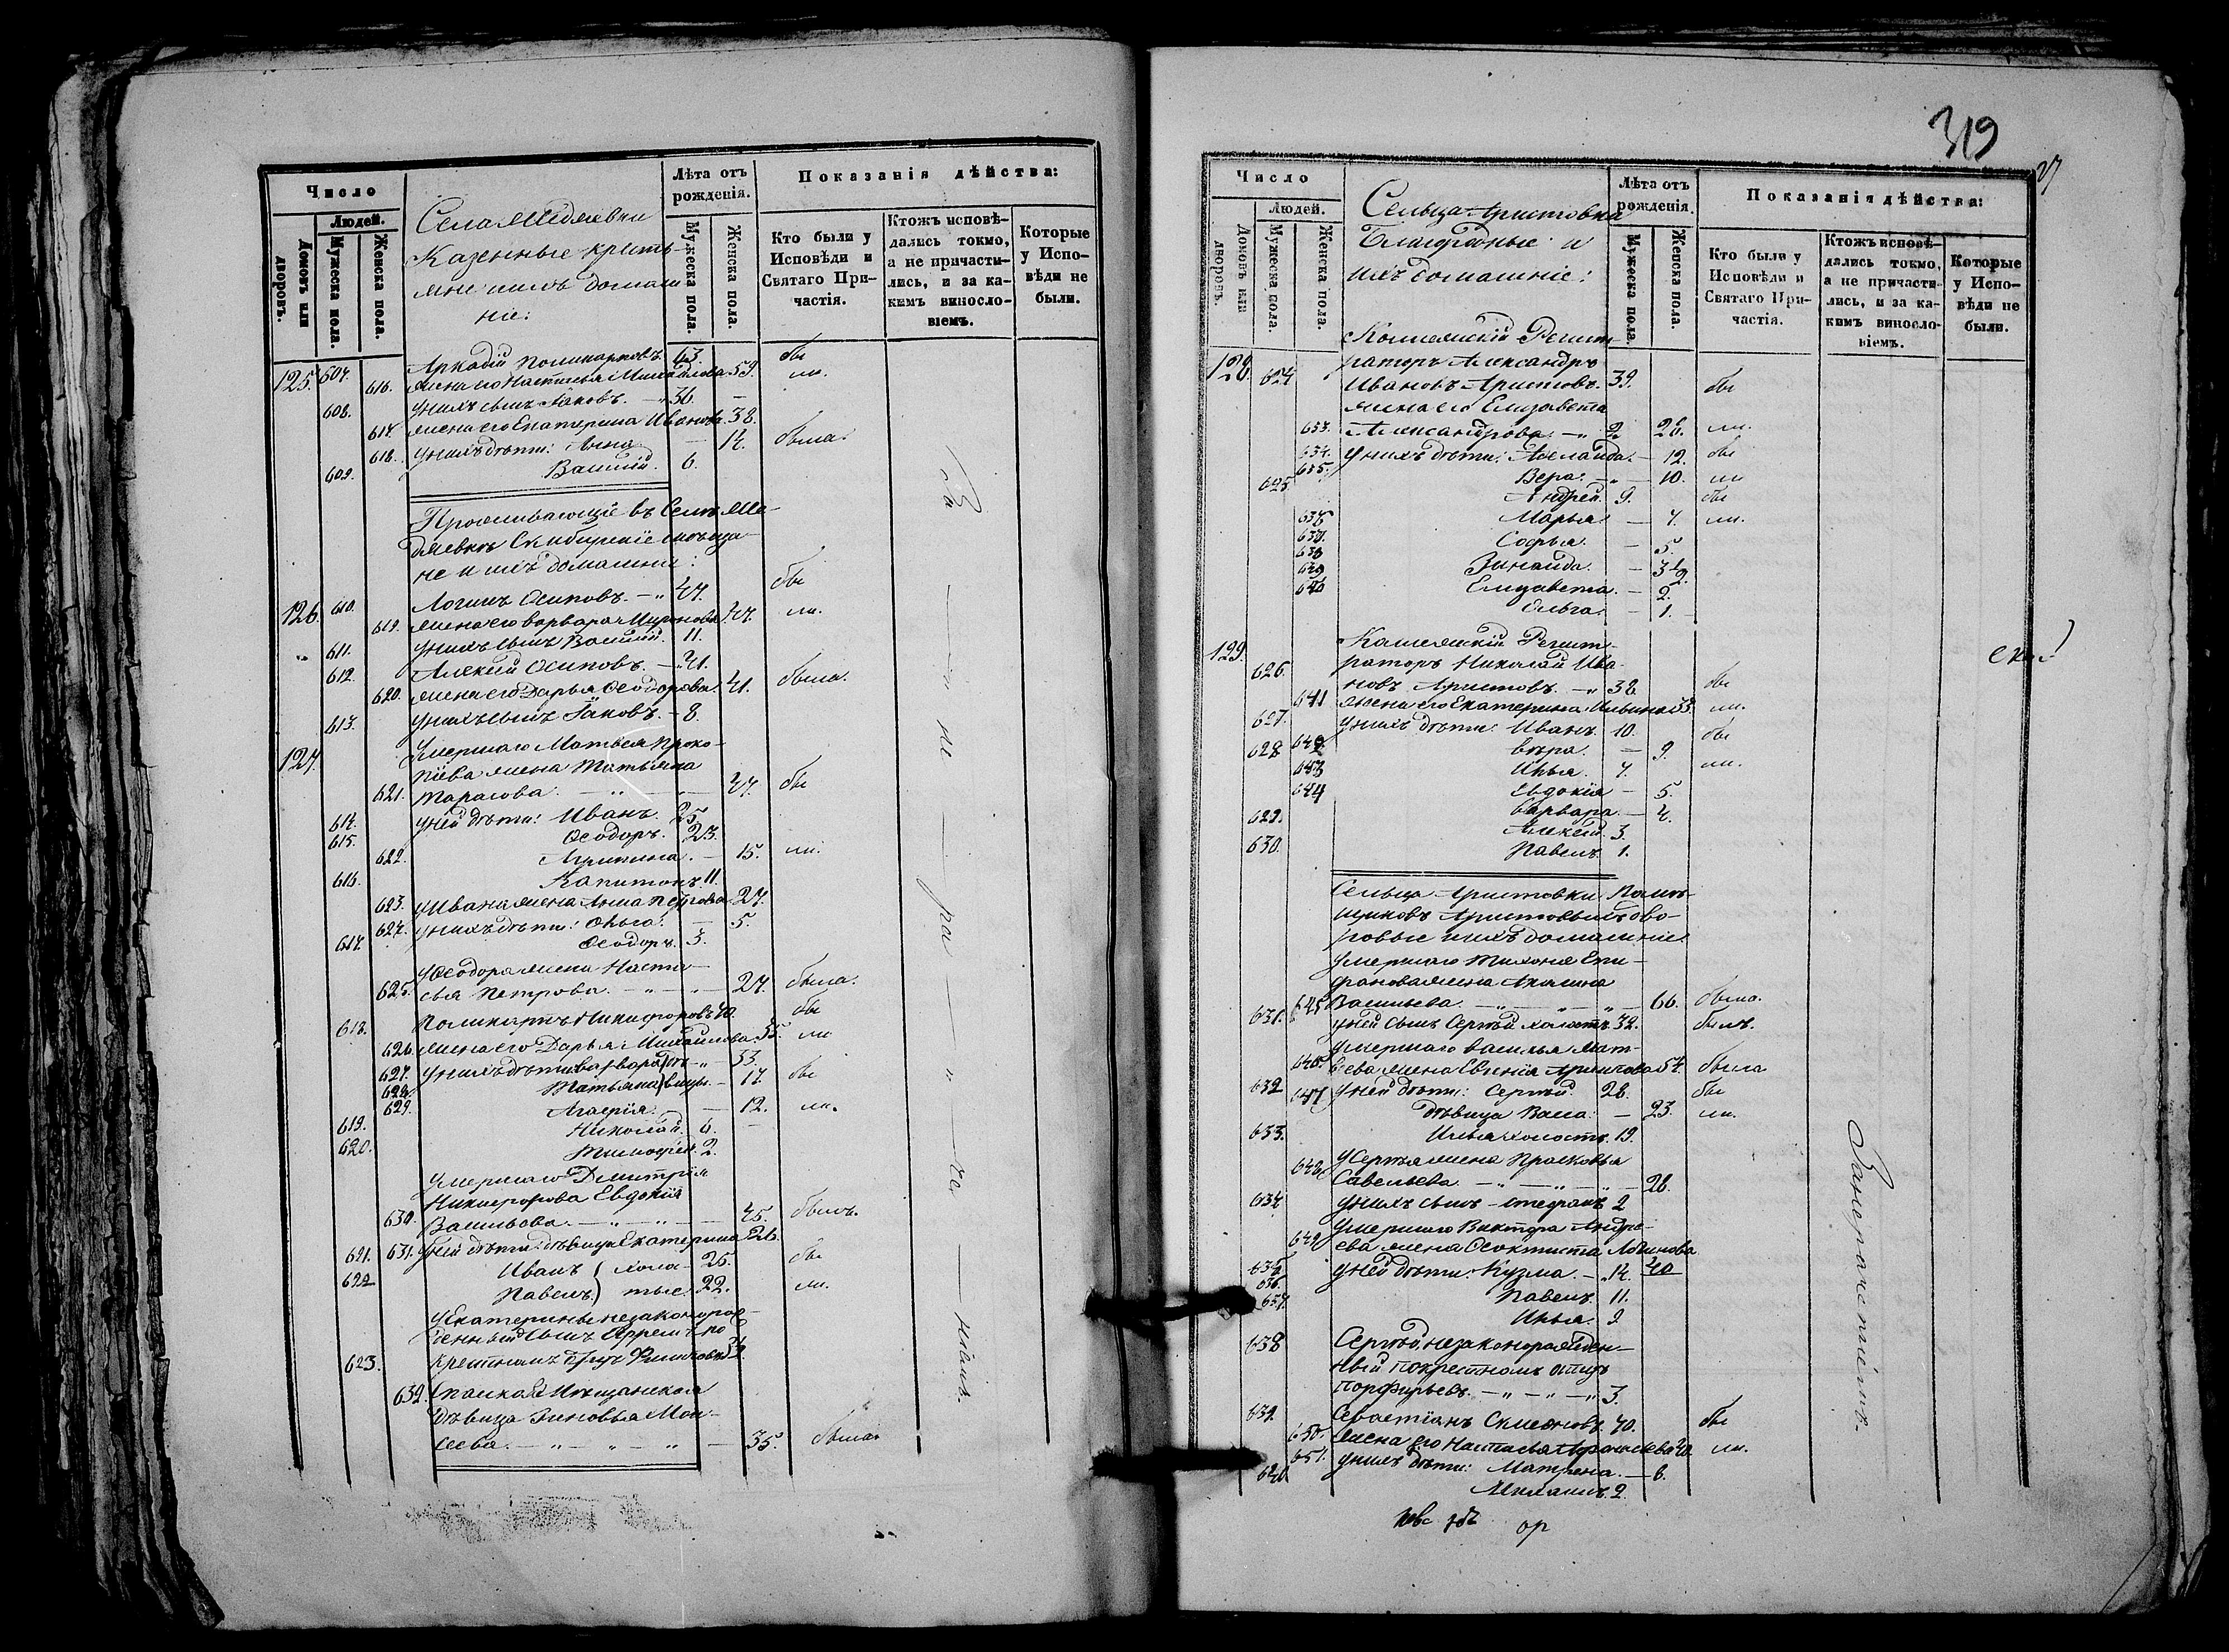 Число
Людей.
Домовъ или дворовъ.
Мужеска пола.
Женска пола.
Села
Казенные кресть-
яне и ихъ домаш
ніе:
Лѣта отъ рожденія.
Мужеска пола.
Женска пола.
Показанія дѣйства:
Кто были у Исповѣди и Святаго При-частія.
Ктожъ исповѣ-дались токмо, а не причасти-лись, и за ка-кимъ винослo-віемъ.
Которые у Испо-вѣди не были.
125. 607. Аркадій Поликарповъ. 63. бы
616. жена его Настасья Михайлова 59. ли.
608. у нихъ сынъ Іаковъ. — 36. —
617. жена его Екатерина Иванова. 38.
618. у нихъ дѣти: Анна — 14. была.
609. Василій. 6.
Проживающіе въ Селѣ
и ихъ домашніе:
126. 610. Логинъ Осиповъ. — 47. бы
619. жена его Варвара Миронова. 47. ли.
611. у нихъ сынъ Василій. 11.
612. Алексій Осиповъ. — 41.
620. жена его Дарья Ѳеодорова. 41. была.
613. у нихъ сынъ Іаковъ. — 8.
127. Умершаго Матвея Проко-
піева жена Татьяна
621. Тарасова. — 47. бы
614. у ней дѣти: Иванъ. 25.
615. Ѳеодоръ. 23.
622. Агрипина. — 15. ли.
616. Капитонъ. 11.
623. у Ивана жена Анна Петрова 27.
624. у нихъ дѣти: Ольга. — 5.
617. Ѳеодоръ. 3.
у Ѳеодора жена Наста-
625. сья Петрова. — 27. была.
618. Поликарпъ Никифоровъ 70. бы
626. жена его Дарья Михайлова 55. ли
627. у нихъ дѣти: Варвара дѣ- 33.
628. Татьяна вицы. — 17. бы
629. Агафія. — 12. ли.
619. Николай. 6. —
620. Тимофей. 2.
Умершаго Димитрія
Никифорова Евдокія
630. Васильева. — 45.
631. у ней дѣти: дѣвица Екатерина 26.
621. Иванъ холо- 25. бы
622. Павелъ тые. 22. ли.
у Екатерины незаконорож-
денный сынъ Ефремъ по
623. крестномъ отцу
632.
дѣвица Зиновья Мои-
сеева. — 35. была.
За
не
ра
че
ніемъ.
319
27
Число
Людей.
Домовъ или дворовъ.
Мужеска пола.
Женска пола.
Сельца Аристовки
Благородные и
ихъ домашніе:
Лѣта отъ рожденія.
Мужеска пола.
Женска пола.
Показанія дѣйства:
Кто были у Исповѣди и Святаго При-частія.
Ктожъ исповѣ-дались токмо, а не причасти-лись, и за ка-кимъ винослo-віемъ.
Которые у Испо-вѣди не были.
Коллежскій Регист-
128. 624 раторъ Александръ
Ивановъ Аристовъ. 39. бы
жена его Елизавета
633. Александрова. — 26. ли.
634. у нихъ дѣти: Аделаида. — 12. бы
635. Вера. — 10. ли
625. Андрей. 9. бы
636 Марья. — 7. ли.
637. Софья. — 5.
638 Зинаида. — 3½
639 Елизавета. — 2.
640 Ольга. — 1.
129. Коллежскій Регист-
626. раторъ Николай Ива-
новъ Аристовъ. — 38. бы
641 жена его Екатерина Ильина 33. ли.
627. у нихъ дѣти: Иванъ. 10. бы
642 Вѣра. — 9.
628 Илья. 7. ли.
643 Евдокія — 5.
644 Варвара. — 4.
629. Алексій. 3.
630. Павелъ. 1.
Сельца Аристовки Помѣ-
щиковъ Аристовыхъ дво-
ровые и ихъ домашніе:
Умершаго Тихона Епи-
фанова жена Акилина
645 Васильева. — 66. была.
631. у ней сынъ Сергѣй холостъ. 32. былъ.
Умершаго Василья Мат-
646. веева жена Евгенія 54. была
632 у ней дѣти: Сергѣй. 28. бы
647 дѣвица Васса. — 23. ли.
633. Илья холостъ. 19.
у Сергѣя жена Прасковья
648 Савельева. — 28.
634 у нихъ сынъ Стефанъ 2
Умершаго Виктора Андре-
649 ева жена Ѳеоктиста Логинова
635 у ней дѣти: Кузма. — 14. 40
636. Павелъ. 11.
637 Илья. 9
638 Сергѣй незаконорожден-
ный по крестномъ отцѣ
Порфирьевъ. — 3.
639. Севастіанъ Симеоновъ. 70. бы
650. жена его Настасья 70. ли.
651. у нихъ дѣти: Матрена. — 8.
640 Михаилъ. 2
За нераченіемъ.